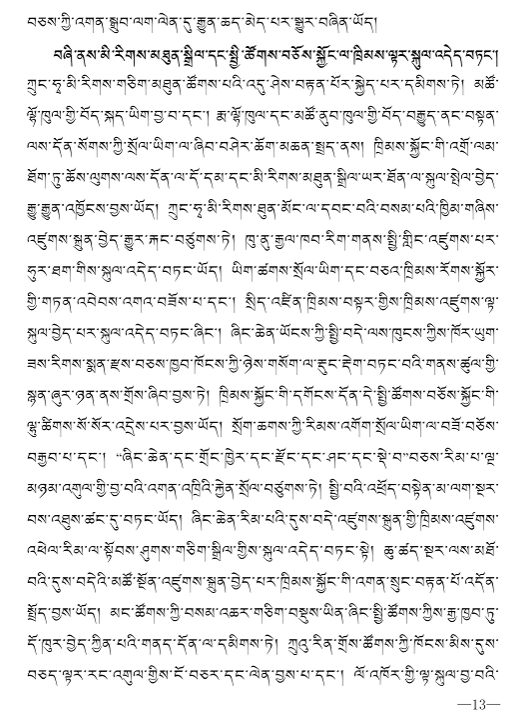 བཅས་ཀྱི་འགན་སྒྲུབ་ལག་ལེན་དུ་རྒྱུན་ཆད་མེད་པར་སྒྱུར་བཞིན་ཡོད།
བཞི་ནས་མི་རིགས་མཐུན་སྒྲིལ་དང་སྤྱི་ཚོགས་བཅོས་སྐྱོང་ལ་ཁྲིམས་ལྟར་སྐུལ་འདེད་བཏང་།
ཀྲུང་ཧྭ་མི་རིགས་གཅིག་མཐུན་ཚོགས་པའི་འདུ་ཤེས་བརྟན་པོར་སྐྱེད་པར་དམིགས་ཏེ། མཚོ་
ལྷོ་ཁུལ་གྱི་བོད་སྐད་ཡིག་བྱ་བ་དང་། རྨ་ལྷོ་ཁུལ་དང་མཚོ་ནུབ་ཁུལ་གྱི་བོད་བརྒྱུད་ནང་བསྟན་
ལས་དོན་སོགས་ཀྱི་སྲོལ་ཡིག་ལ་ཞིབ་བཤེར་ཆོག་མཆན་སྤྲད་ནས། ཁྲིམས་སྐྱོང་གི་འགྲོ་ལམ་
ཐོག་ཏུ་ཆོས་ལུགས་ལས་དོན་ལ་དོ་དམ་དང་མི་རིགས་མཐུན་སྒྲིལ་ཡར་ཐོན་ལ་སྐུལ་སྤེལ་བྱེད་
རྒྱུ་རྒྱུན་འཁྱོངས་བྱས་ཡོད། ཀྲུང་ཧྭ་མི་རིགས་ཐུན་མོང་ལ་དབང་བའི་བསམ་པའི་ཁྱིམ་གཞིས་
འཛུགས་སྐྲུན་བྱེད་རྒྱུར་རྐང་བཙུགས་ཏེ། ཁུ་ནུ་རྒྱལ་ཁབ་རིག་གནས་སྤྱི་གླིང་འཛུགས་པར་
ཧུར་ཐག་གིས་སྐུལ་འདེད་བཏང་ཡོད། ཡིག་ཚགས་སྲོལ་ཡིག་དང་བཅའ་ཁྲིམས་རོགས་སྐྱོར་
གྱི་གཏན་འབེབས་འགའ་བཟོས་པ་དང་། སྲིད་འཛིན་ཁྲིམས་བསྟར་གྱིས་ཁྲིམས་འཛུགས་ལྟ་
སྐུལ་བྱེད་པར་སྐུལ་འདེད་བཏང་ཞིང་། ཞིང་ཆེན་ཡོངས་ཀྱི་སྤྱི་བདེ་ལས་ཁུངས་ཀྱིས་ཁོར་ཡུག་
ཟས་རིགས་སྨན་རྫས་བཅས་ཁྱབ་ཁོངས་ཀྱི་ཉེས་གསོག་ལ་རྡུང་རྡེག་བཏང་བའི་གནས་ཚུལ་གྱི་
སྙན་ཞུར་ཉན་ནས་གྲོས་ཞིབ་བྱས་ཏེ། ཁྲིམས་སྐྱོང་གི་དགོངས་དོན་དེ་སྤྱི་ཚོགས་བཅོས་སྐྱོང་གི་
ལྷུ་ཚིགས་སོ་སོར་འདྲེས་པར་བྱས་ཡོད། སྲོག་ཆགས་ཀྱི་རིམས་འགོག་སྲོལ་ཡིག་ལ་བཟོ་བཅོས་
བརྒྱབ་པ་དང་། “ཞིང་ཆེན་དང་གྲོང་ཁྱེར་དང་རྫོང་དང་ཤང་དང་སྡེ་བ”བཅས་རིམ་པ་ལྔ་
མཉམ་འགུལ་གྱི་བྱ་བའི་འགན་འཁྲིའི་རྐྱེན་སྲོལ་བཙུགས་ཏེ། སྤྱི་བའི་འཕྲོད་བསྟེན་མ་ལག་སྔར་
བས་འཐུས་ཚང་དུ་བཏང་ཡོད། ཞིང་ཆེན་རིམ་པའི་དུས་བདེ་འཛུགས་སྐྲུན་གྱི་ཁྲིམས་འཛུགས་
འཕེལ་རིམ་ལ་སྟོབས་ཤུགས་གཅིག་སྒྲིལ་གྱིས་སྐུལ་འདེད་བཏང་སྟེ། ཆུ་ཚད་སྔར་ལས་མཐོ་
བའི་དུས་བདེའི་མཚོ་སྔོན་འཛུགས་སྐྲུན་བྱེད་པར་ཁྲིམས་སྐྱོང་གི་འགན་སྲུང་བརྟན་པོ་འདོན་
སྤྲོད་བྱས་ཡོད། མང་ཚོགས་ཀྱི་བསམ་འཆར་གཅིག་བསྡུས་ཡིན་ཞིང་སྤྱི་ཚོགས་ཀྱིས་རྒྱ་ཁྱབ་ཏུ་
དོ་ཁུར་བྱེད་ཀྱིན་པའི་གནད་དོན་ལ་དམིགས་ཏེ། ཀྲའུ་རིན་གྲོས་ཚོགས་ཀྱི་ཁོངས་མིས་དུས་
བཅད་ལྟར་རང་འགུལ་གྱིས་ངོ་བཅར་དང་ལེན་བྱས་པ་དང་། ལོ་འཁོར་གྱི་ལྟ་སྐུལ་བྱ་བའི་
—13—